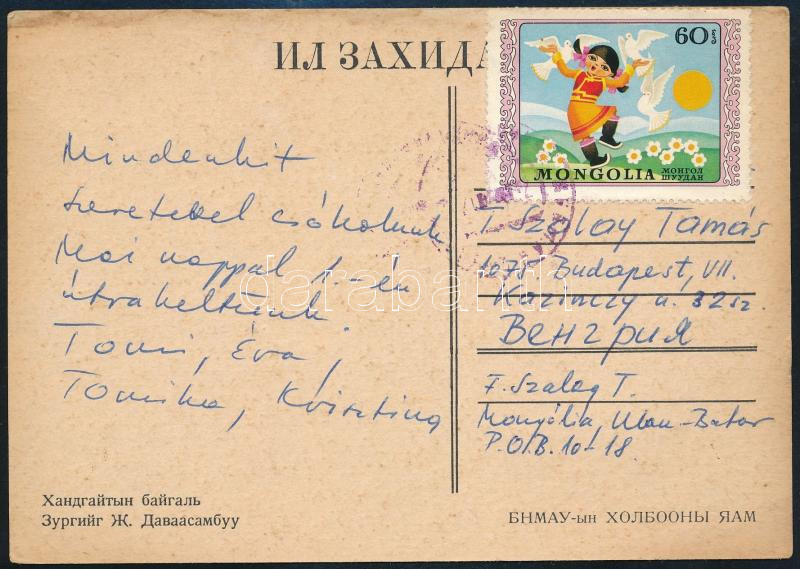 ИЛ ЗАХИДА
60
MONGOLIA МОНГОЛ ШУУДАН
Mindenkit
szeretettel csókolunk
Mai nappal 1.-én
útrakeltünk.
Tomi, Éva,
Tomika, Krisztina
T. Szalay Tamás
1075 Budapest, VII.
Kazinczy u. 32 sz.
Венгрия
F. Szalay T.
Mongólia, Ulan-Bator
P.O.B. 10-18.
Хандгайтын байгаль
Зургийг Ж. Даваасамбуу
БНМАУ-ын ХОЛБООНЫ ЯАМ
darabanth